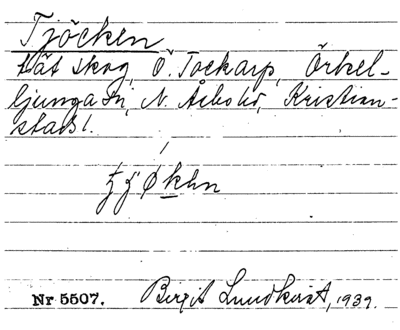 Tjöcken
tät skog, Ö. Tockarp, Örkel-
ljunga sn, N. Åsbo hd, Kristian-
stads l.
Nr 5507. Birgit Lundkvist, 1939.